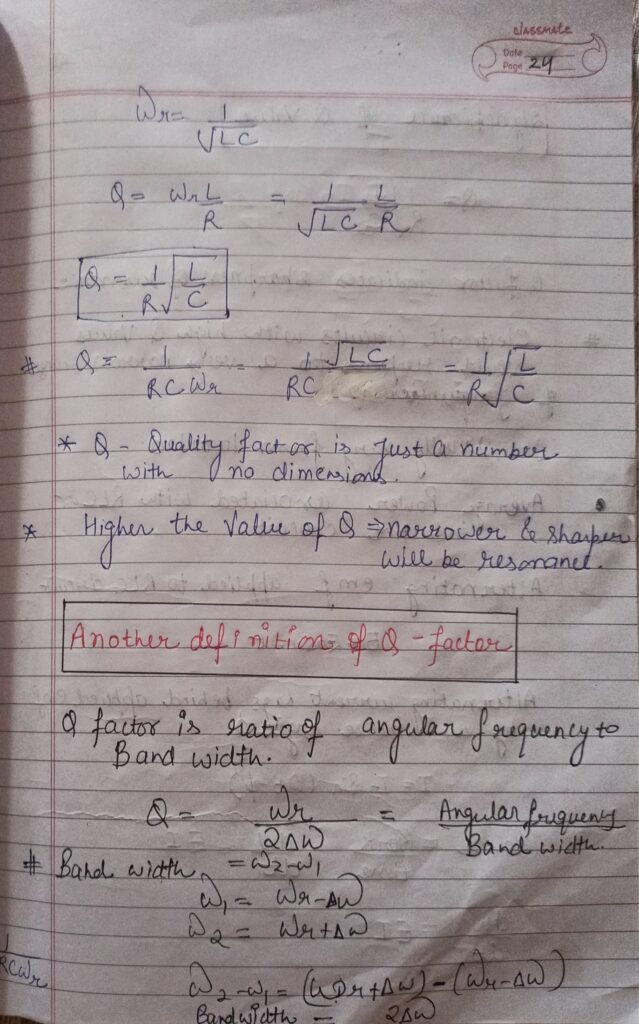 classmate
Date
Page 24
Wr = 1/√LC
Q = WrL/R = 1/√LC L/R
Q = 1/R √L/C
# Q = 1/RCWr = 1/RC √LC = 1/R √L/C
* Q - Quality factor is just a number
with no dimensions.
* Higher the Value of Q ⇒ narrower & sharper
will be resonance.
Another definition of Q - factor
Q factor is ratio of angular frequency to
Band width.
Q = Wr/2ΔW = Angular frequency/Band width.
# Band width = ω2-ω1
ω1 = Wr-ΔW
ω2 = Wr+ΔW
1/RCWr
ω2-ω1 = (ωr+Δω)-(Wr-ΔW)
Bandwidth = 2ΔW